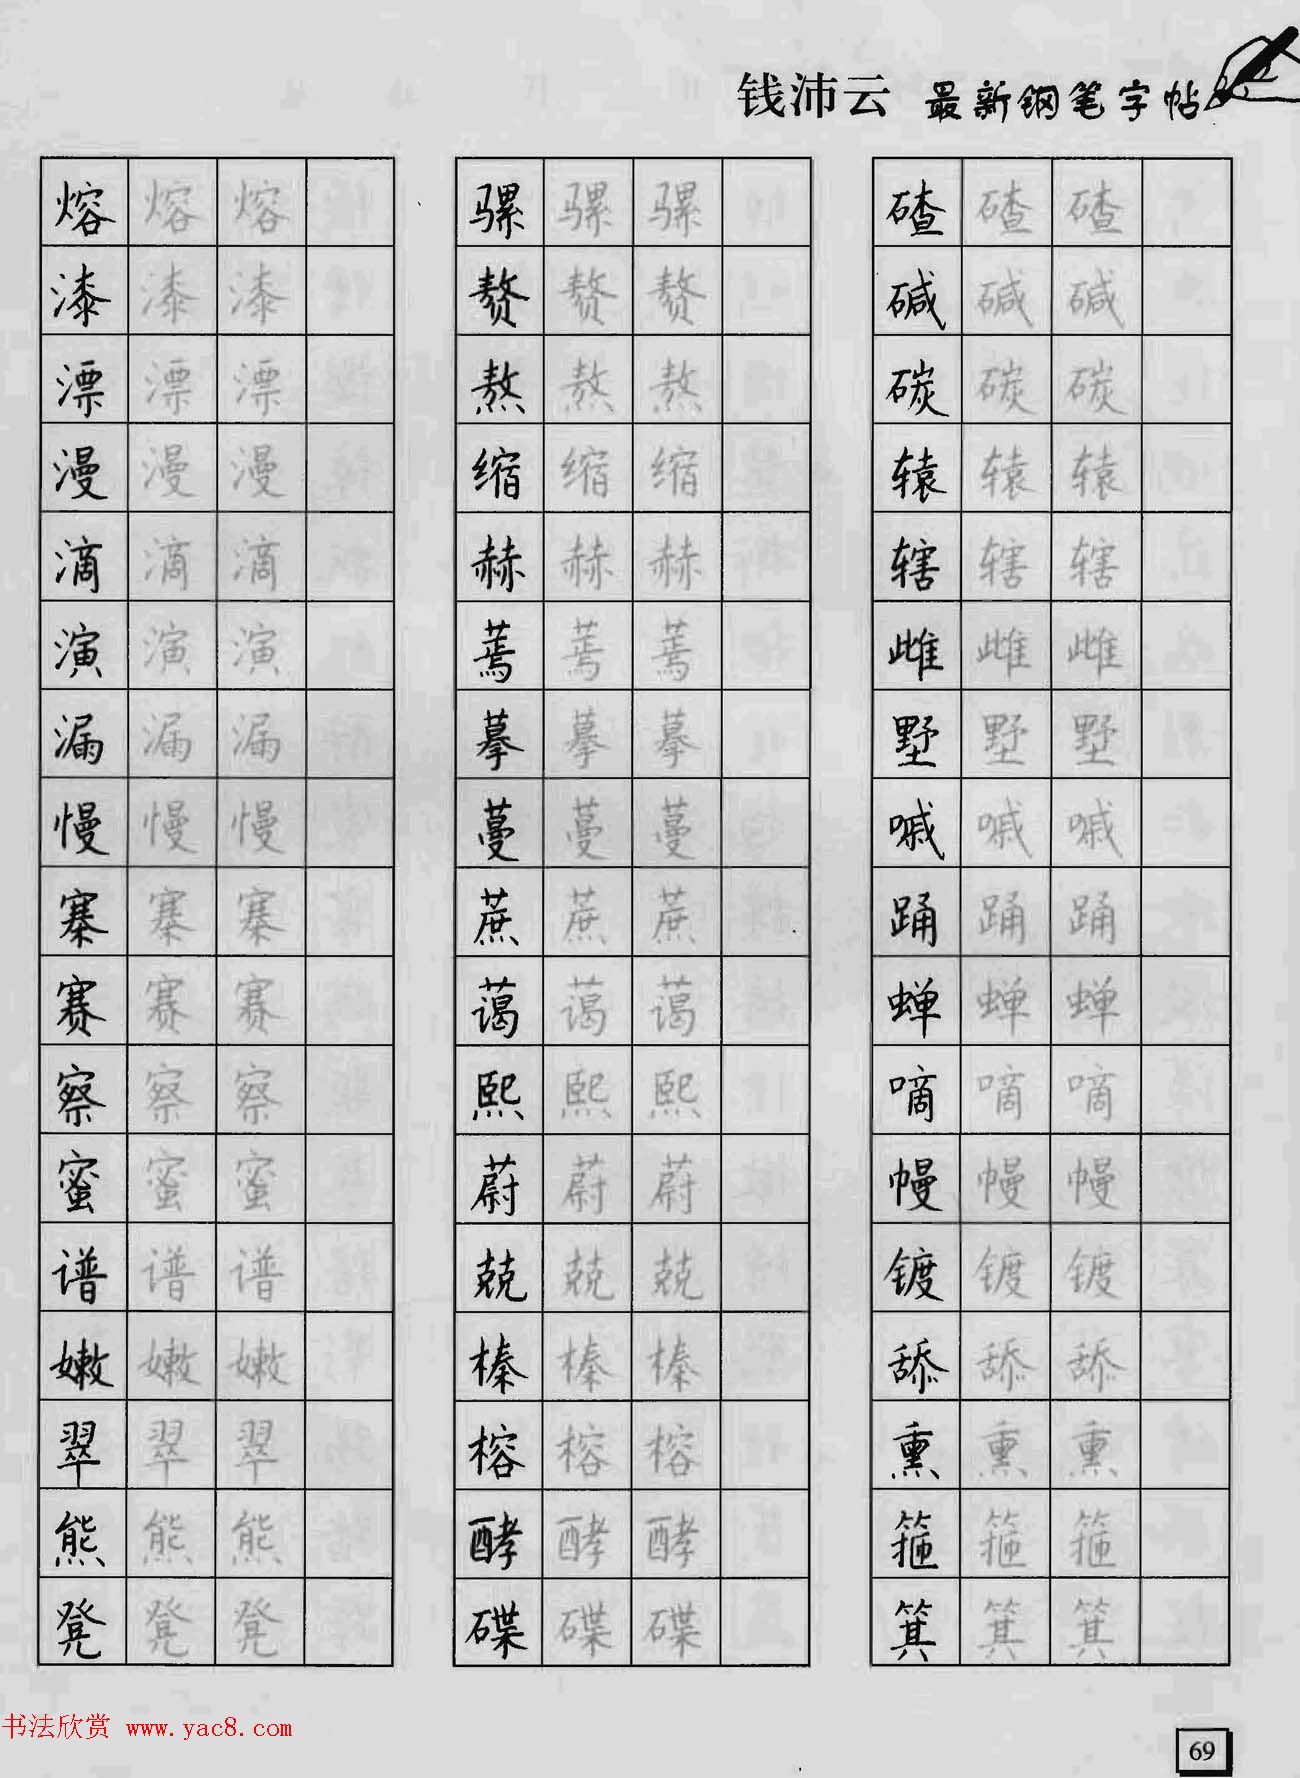 钱沛云 最新钢笔字帖
熔 熔 熔
漆 漆 漆
漂 漂 漂
漫 漫 漫
滴 滴 滴
演 演 演
漏 漏 漏
慢 慢 慢
寨 寨 寨
赛 赛 赛
察 察 察
蜜 蜜 蜜
谱 谱 谱
嫩 嫩 嫩
翠 翠 翠
熊 熊 熊
凳 凳 凳
骡 骡 骡
赘 赘 赘
熬 熬 熬
缩 缩 缩
赫 赫 赫
蔫 蔫 蔫
摹 摹 摹
蔓 蔓 蔓
蔗 蔗 蔗
蔼 蔼 蔼
熙 熙 熙
蔚 蔚 蔚
兢 兢 兢
榛 榛 榛
榕 榕 榕
酵 酵 酵
碟 碟 碟
碴 碴 碴
碱 碱 碱
碳 碳 碳
辕 辕 辕
辖 辖 辖
雌 雌 雌
墅 墅 墅
嘁 嘁 嘁
踊 踊 踊
蝉 蝉 蝉
嘀 嘀 嘀
幔 幔 幔
镀 镀 镀
舔 舔 舔
熏 熏 熏
箍 箍 箍
箕 箕 箕
书法欣赏 www.yac8.com
69